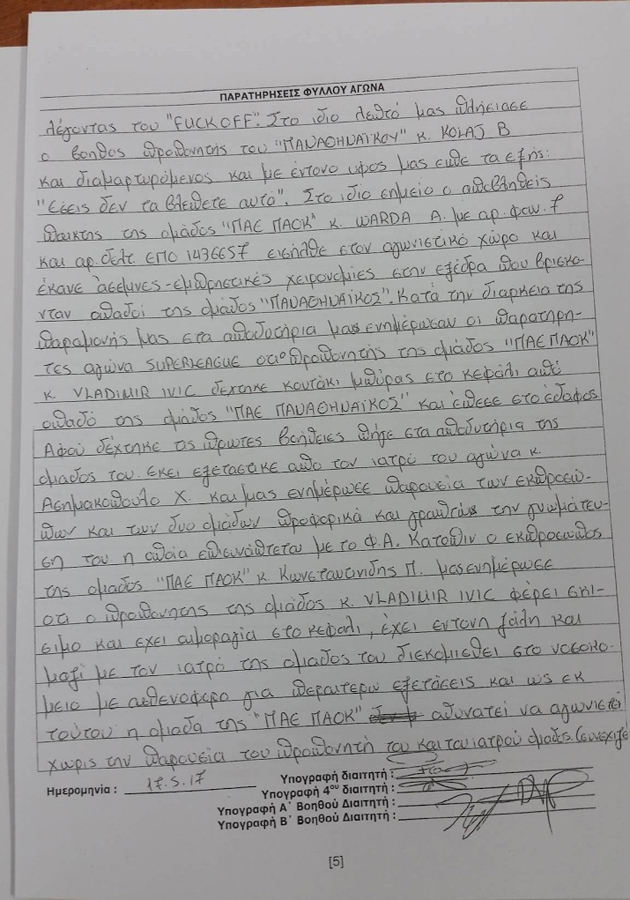 ΠΑΡΑΤΗΡΗΣΕΙΣ ΦΥΛΛΟΥ ΑΓΩΝΑ
λέγοντας του "FUCK OFF". Στο ιδιο λεπτό μας πλησιασε
ο βοηθος προπονητής του "ΠΑΝΑΘΗΝΑΪΚΟΥ" κ. KOLAJ B
και διαμαρτυρόμενος και με έντονο υφος μας ειπε τα εξής:
"Εσεις δεν τα βλεπετε αυτα". Στο ιδιο σημειο ο αποβληθεις
παικτης της ομαδος "ΠΑΕ ΠΑΟΚ" κ. WARDA A. με αρ. φαν. 7
και αρ. δελτ ΕΠΟ 1436657 εισήλθε στον αγωνιστικό χώρο και
έκανε άσεμνες-εμπρηστικές χειρονομίες στην εξέδρα που βρισκο-
νταν οπαδοί της ομάδος "ΠΑΝΑΘΗΝΑΪΚΟΣ". Κατά την διαρκεια της
παραμονής μας στα αποδυτήρια μας ενημέρωσαν οι παρατηρη-
τές αγώνα SUPERLEAGUE οτι ο προπονητής της ομάδος "ΠΑΕ ΠΑΟΚ"
κ. VLADIMIR IVIC δεχτηκε κουτάκι μπύρας στο κεφάλι από
οπαδό της ομάδος "ΠΑΕ ΠΑΝΑΘΗΝΑΪΚΟΣ" και έπεσε στο έδαφος
Αφού δέχτηκε τις πρωτες βοήθειες πήγε στα αποδυτήρια της
ομαδος του. Εκει εξεταστικε απο τον ιατρό του αγώνα κ.
Ασημακοπουλο Χ. και μας ενημέρωσε παρουσία των εκπροσώ-
πων και των δυο ομάδων προφορικά και γραπτώς την γνωμάτευ-
ση του η οποία επισυνάπτεται με το Φ.Α. Κατόπιν ο εκπροσωπος
της ομάδος "ΠΑΕ ΠΑΟΚ" κ. Κωνσταντινιδης Π. μας ενημέρωσε
οτι ο προπονητης της ομάδος κ. VLADIMIR IVIC φέρει σκι-
σιμο και εχει αιμοραγία στο κεφάλι, έχει εντονη ζάλη και
μαζι με τον ιατρό της ομαδος του διεκομισθει στο νοσοκο-
μειο με ασθενοφορο για περαιτερω εξετάσεις και ως εκ
τούτου η ομαδα της "ΠΑΕ ΠΑΟΚ" αδυνατεί να αγωνιστεί
χωρις την παρουσια του προπονητή του και του ιατρού ομαδος (συνεχιζε
Ημερομηνία : 17.5.17
Υπογραφή διαιτητή :
Υπογραφή 4ου διαιτητή :
Υπογραφή Α΄ Βοηθού Διαιτητή :
Υπογραφή Β΄ Βοηθού Διαιτητή :
[5]